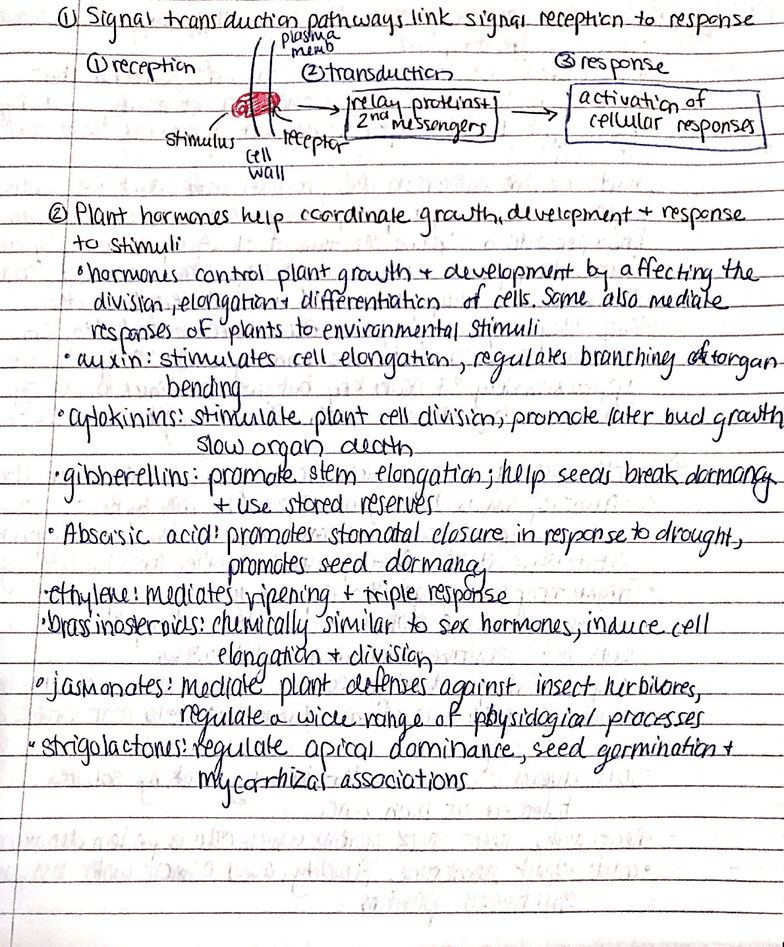 ① Signal transduction pathways link signal reception to response
plasma
memb
① reception
② transduction
③ response
stimulus
receptor
cell
wall
relay proteins +
2nd messengers
activation of
cellular responses
② Plant hormones help coordinate growth, development + response
to stimuli
• hormones control plant growth + development by affecting the
division, elongation + differentiation of cells. Some also mediate
responses of plants to environmental stimuli
• auxin: stimulates cell elongation, regulates branching + organ
bending
• cytokinins: stimulate plant cell division, promote later bud growth
slow organ death
• gibberellins: promote stem elongation; help seeds break dormancy
+ use stored reserves
• Abscisic acid: promotes stomatal closure in response to drought,
promotes seed dormancy
• ethylene: mediates ripening + triple response
• brassinosteroids: chemically similar to sex hormones, induce cell
elongation + division
• jasmonates: mediate plant defenses against insect herbivores,
regulate a wide range of physiological processes
• strigolactones: regulate apical dominance, seed germination +
mycorrhizal associations